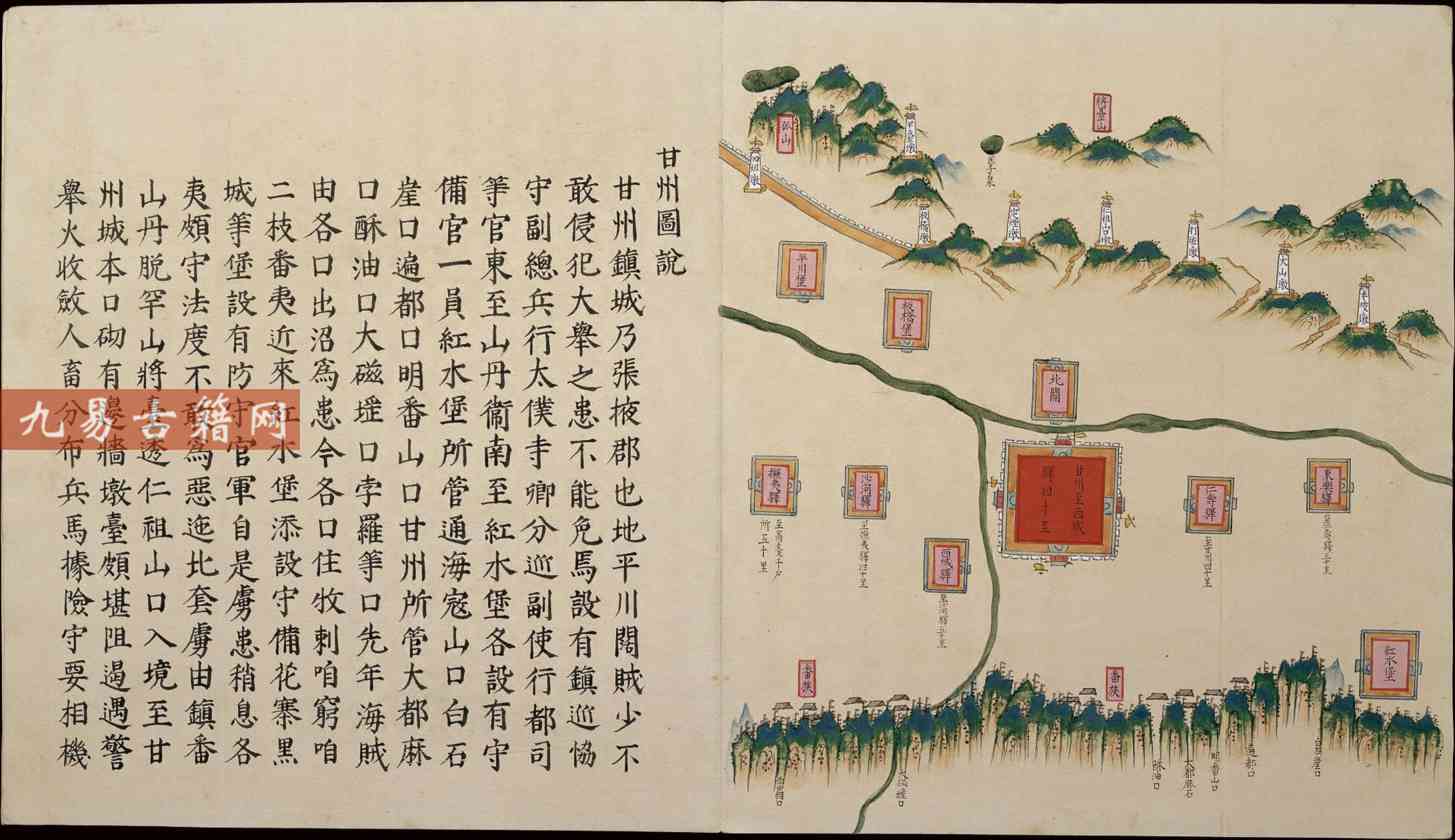 甘州圖說
甘州鎮城乃張掖郡也地平川闊賊少不
敢侵犯大舉之患不能免焉設有鎮巡恊
守副總兵行太僕寺卿分巡副使行都司
等官東至山丹衞南至紅水堡各設有守
備官一員紅水堡所管通海寇山口白石
崖口遍都口明番山口甘州所管大都麻
口酥油口大磁𡋾口孛羅等口先年海賊
由各口出沼爲患今各口住牧剌咱窮咱
二枝番夷近來紅水堡添設守備花寨黑
城等堡設有防守官軍自是虜患稍息各
夷頗守法度不敢爲惡迤北套虜由鎮番
山丹脱罕山將臺透仁祖山口入境至甘
州城本口砌有邊牆墩臺頗堪阻遏遇警
舉火收斂人畜分布兵馬據險守要相機
九易古籍网
將臺山
平川堡
板橋堡
北關
甘州至西城
驛四十里
撫夷驛
沙河驛
西城驛
仁壽驛
東樂驛
紅水堡
番族
番族
大山墩
酥油口
明番山口